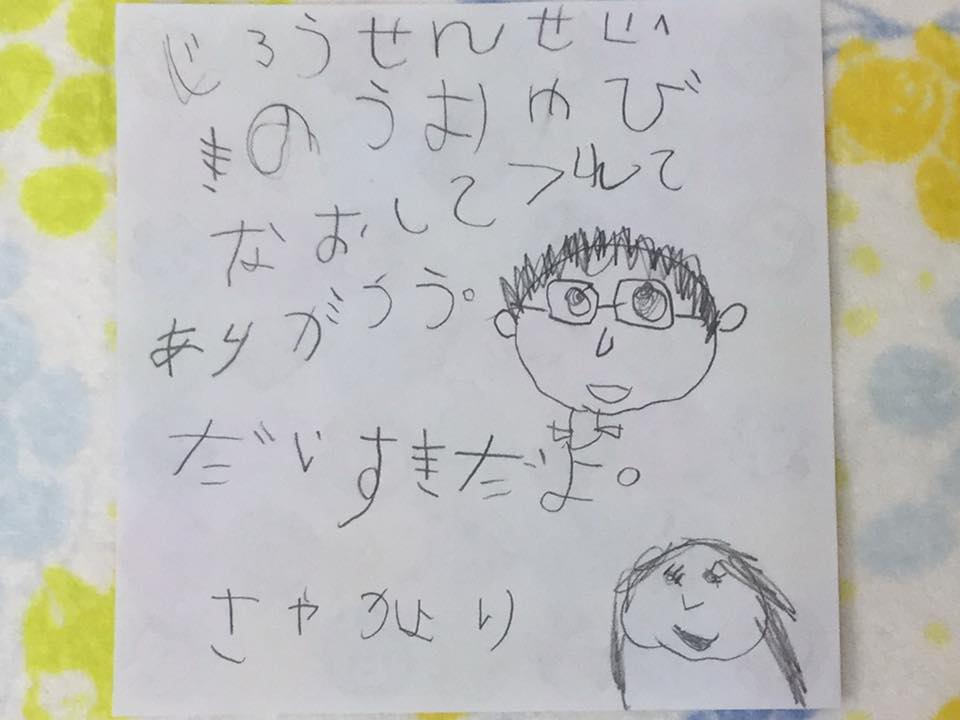 じろうせんせいへ
きのうおゆび
なおしてくれて
ありがうう。
だいすきだよ。
さやかより